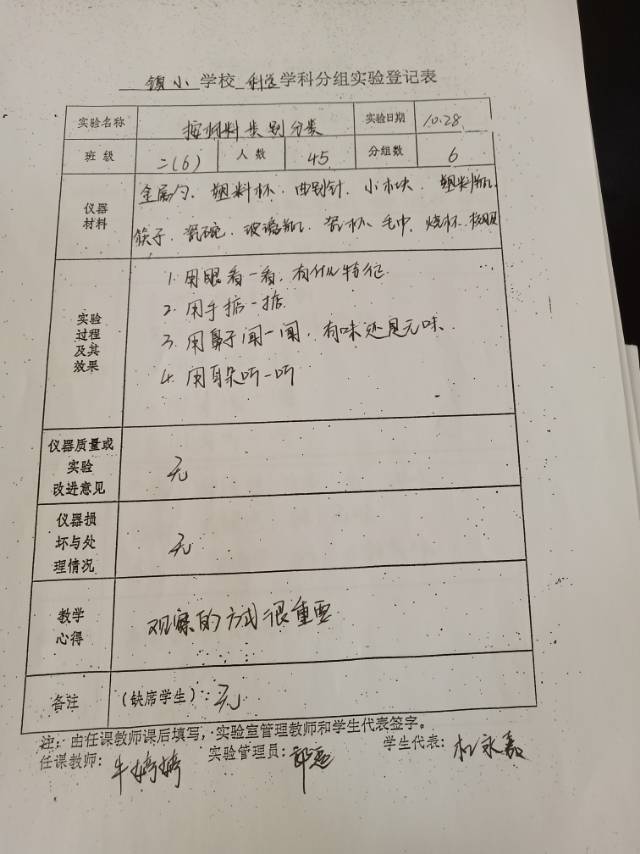 镇小学校 科学学科分组实验登记表
实验名称 按材料类别分类 实验日期 10.28
班级 二(6) 人数 45 分组数 6
仪器材料 金属勺、塑料杯、曲别针、小木块、塑料瓶
筷子、瓷碗、玻璃瓶、瓷杯、毛巾、烧杯、
实验过程及其效果
1. 用眼看一看，有什么特征
2. 用手掂一掂
3. 用鼻子闻一闻，有味还是无味.
4. 用耳朵听一听
仪器质量或实验改进意见 无
仪器损坏与处理情况 无
教学心得 观察的方式很重要
备注 (缺席学生)：无
注：由任课教师课后填写，实验室管理教师和学生代表签字。
任课教师：牛婷婷 实验管理员： 学生代表：